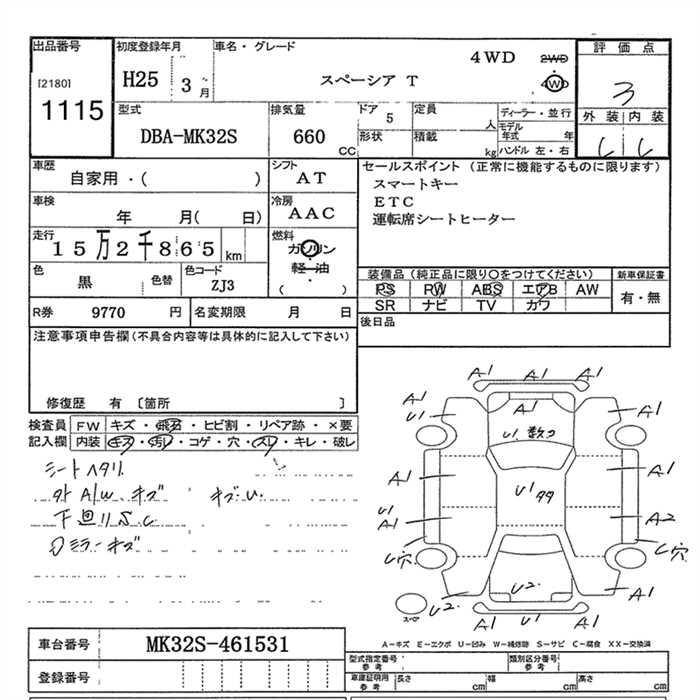 出品番号 初度登録年月 車名・グレード 4WD 2WD 評価点
[2180] H25 3月 スペーシア T ・
1115 4WD 3
型式 排気量 ドア 5 定員 人 ディーラー・並行 外装 内装
DBA-MK32S 660 CC 形状 積載 kg モデル年式 年 C C
ハンドル 左・右
車歴 シフト セールスポイント (正常に機能するものに限ります)
自家用・( ) AT スマートキー
車検 冷房 ETC
年 月( 日) AAC 運転席シートヒーター
走行 燃料
15万2千865km ガソリン
軽・油
色 色替 色コード ・ 装備品(純正品に限り○をつけてください) 新車保証書
黒 ZJ3 ( ) PS PW ABS エアB AW 有・無
R券 9770 円 名変期限 月 日 SR ナビ TV カワ
注意事項申告欄(不具合内容等は具体的に記入して下さい) 後日品
修復歴 有 〔箇所 〕
検査員 FW キズ・飛石・ヒビ割・リペア跡・×要
記入欄 内装 キズ・汚レ・コゲ・穴・スレ・キレ・破レ
シートヘタリ
外A/W.キズ キズU.
下廻りS.C
ミラーキズ
A1 A1 A1
A1 A1
U1 U1 数コ
A1 A1
U1 99
U1
A1 A2
C穴 C穴
A1 U2. A1
スペア U2 A1 U1 A1
車台番号 MK32S-461531
A-キズ E-エクボ U-凹み W-補修跡 S-サビ C-腐食 XX-交換済
登録番号 型式指定番号 参考 類別区分番号 参考
車庫証明用 参考 長さ cm 幅 cm 高さ cm